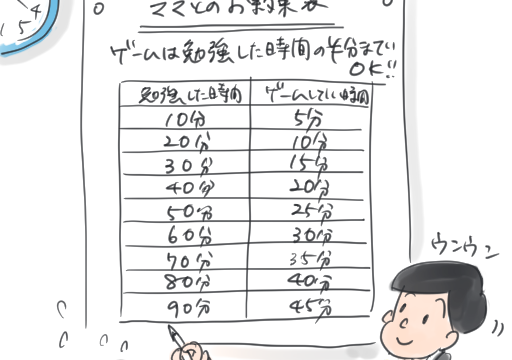 4
5
ママとのお約束表
ゲームは勉強した時間の半分まで
OK!!
勉強した時間 ゲームしていい時間
10分 5分
20分 10分
30分 15分
40分 20分
50分 25分
60分 30分
70分 35分
80分 40分
90分 45分
ウンウン